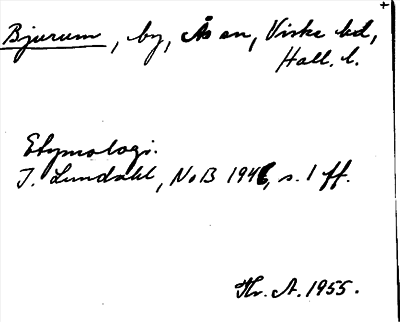 Bjurum, by, Ås sn, Viske hd,
Hall. l.
Etymologi.
I. Lundahl, NoB 1946, s. 1 ff.
Hr. A. 1955.